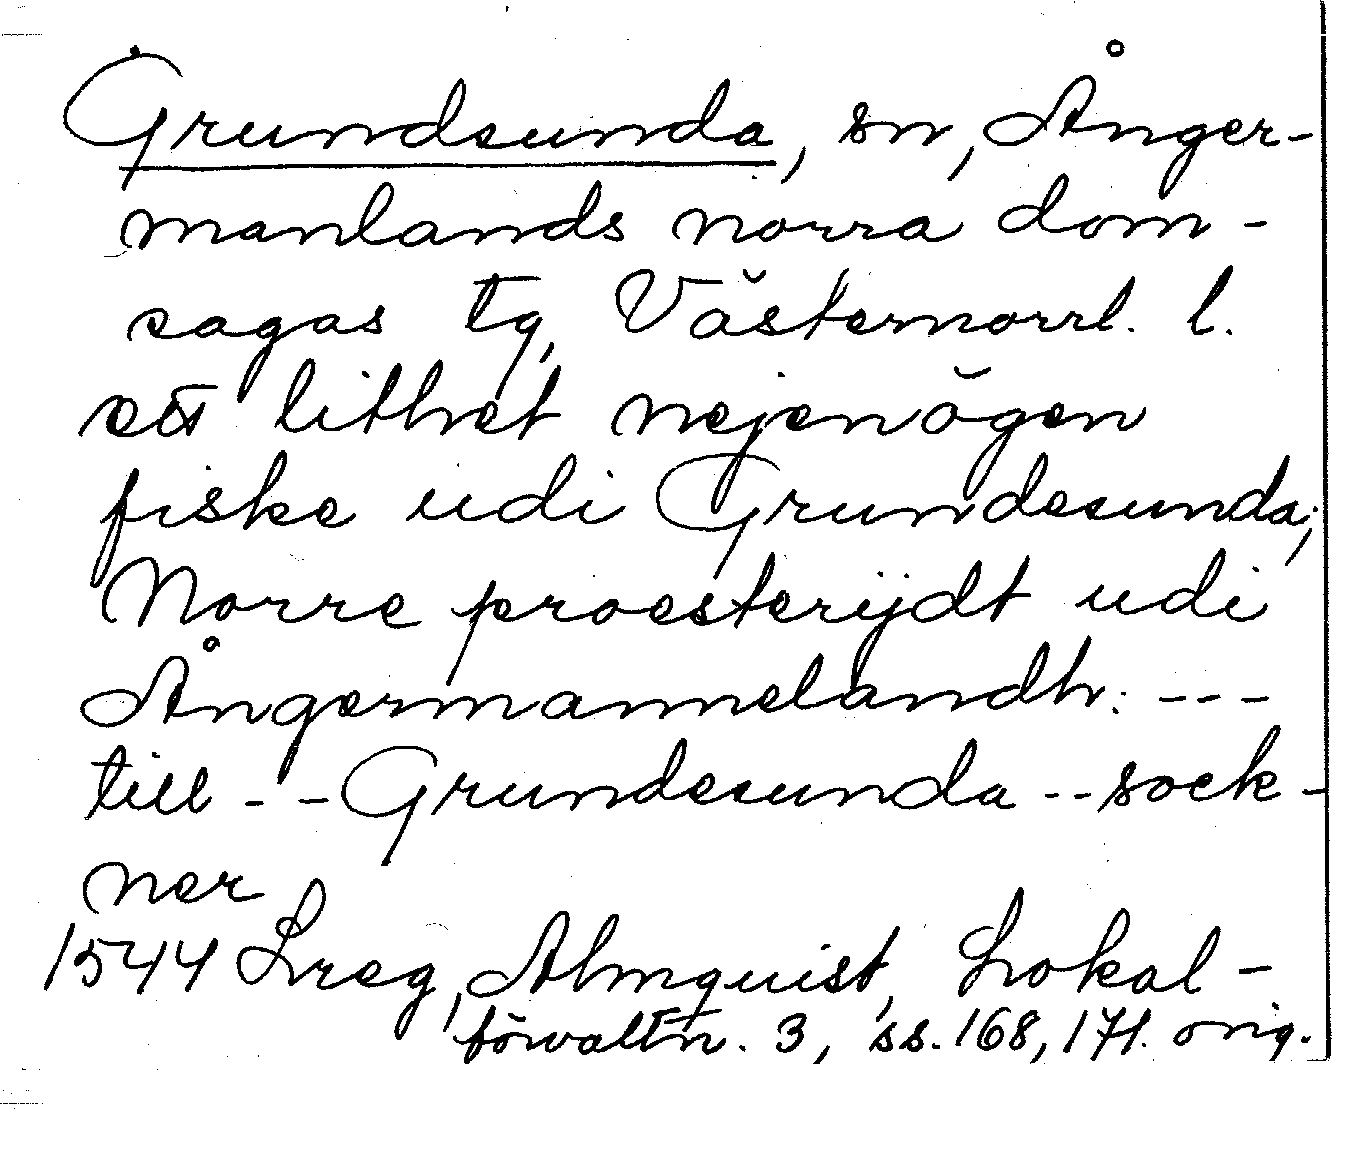 Grundsunda, sn, Ånger-
manlands norra dom-
sagas tg, Västernorrl. l.
ett lithet nejenögen
fiske udi Grundesunda;
Norre proesterijdt udi
Ångermannelandh: ---
till -- Grundesunda -- sock-
ner
1544 Lreg, Almquist, Lokal-
förvaltn. 3, ss. 168, 171. orig.